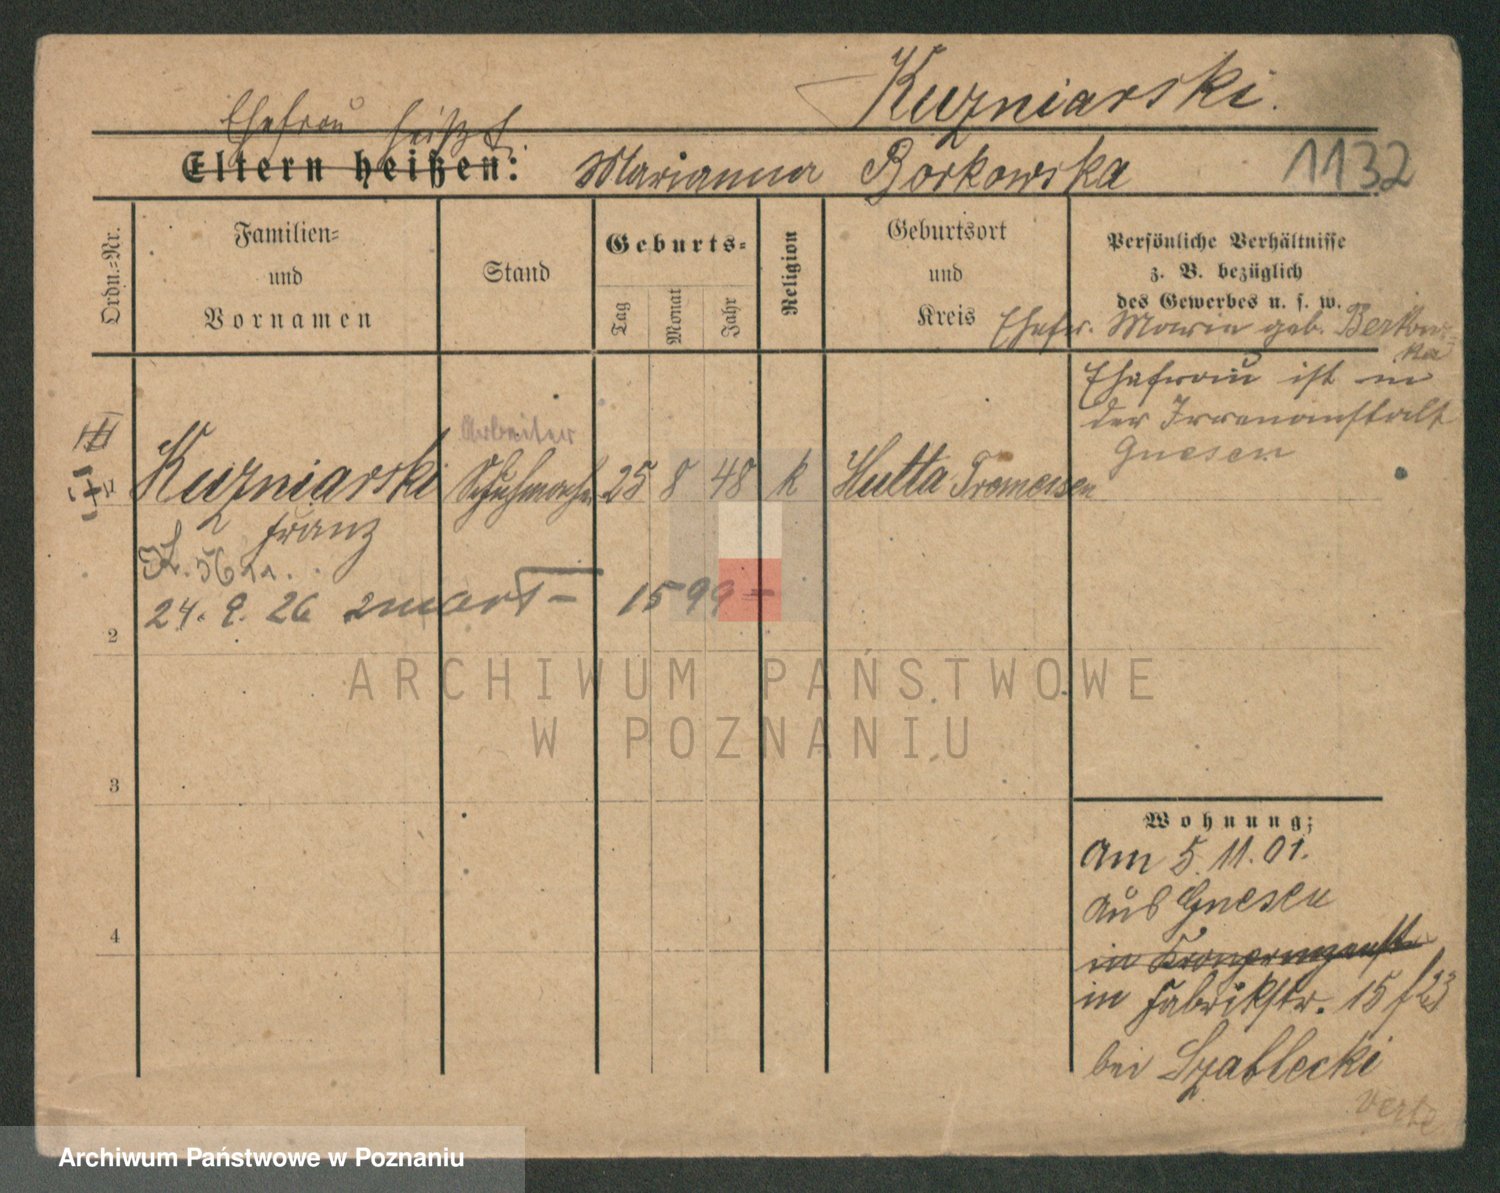 Kuzniarski.
Ehefrau heißt
Eltern heißen: Marianna Borkowska
1132
Ordn.-Nr.
Familien-
und
Vornamen
Stand
Geburts-
Tag
Monat
Jahr
Religion
Geburtsort
und
Kreis
Persönliche Verhältnisse
z. B. bezüglich
des Gewerbes u. s. w.
Ehefr. Maria geb. Berkows-
ka
Ehefrau ist in
der Irrenanstalt
Gnesen
Arbeiter
Kuzniarski Schuhmach. 25 8 48 k Hutta Tremessen
Franz
24. 9. 26 zmarł – 1599
2
3
4
Wohnung:
Am 5.11.01.
Aus Gnesen
in Kronprinzenst.
in Fabrikstr. 15
bei Szablecki
verte
ARCHIWUM PAŃSTWOWE
W POZNANIU
Archiwum Państwowe w Poznaniu